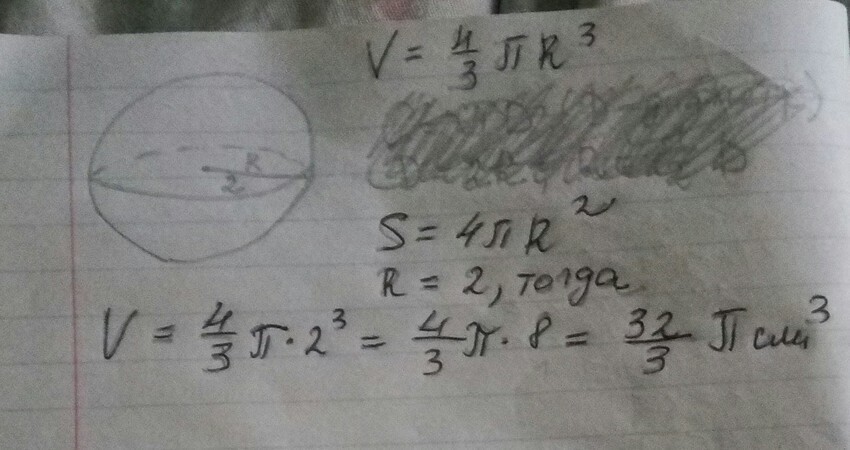 V = 4/3 π R³
R
2
S = 4πR²
R = 2, тогда
V = 4/3 π · 2³ = 4/3 π · 8 = 32/3 π см³